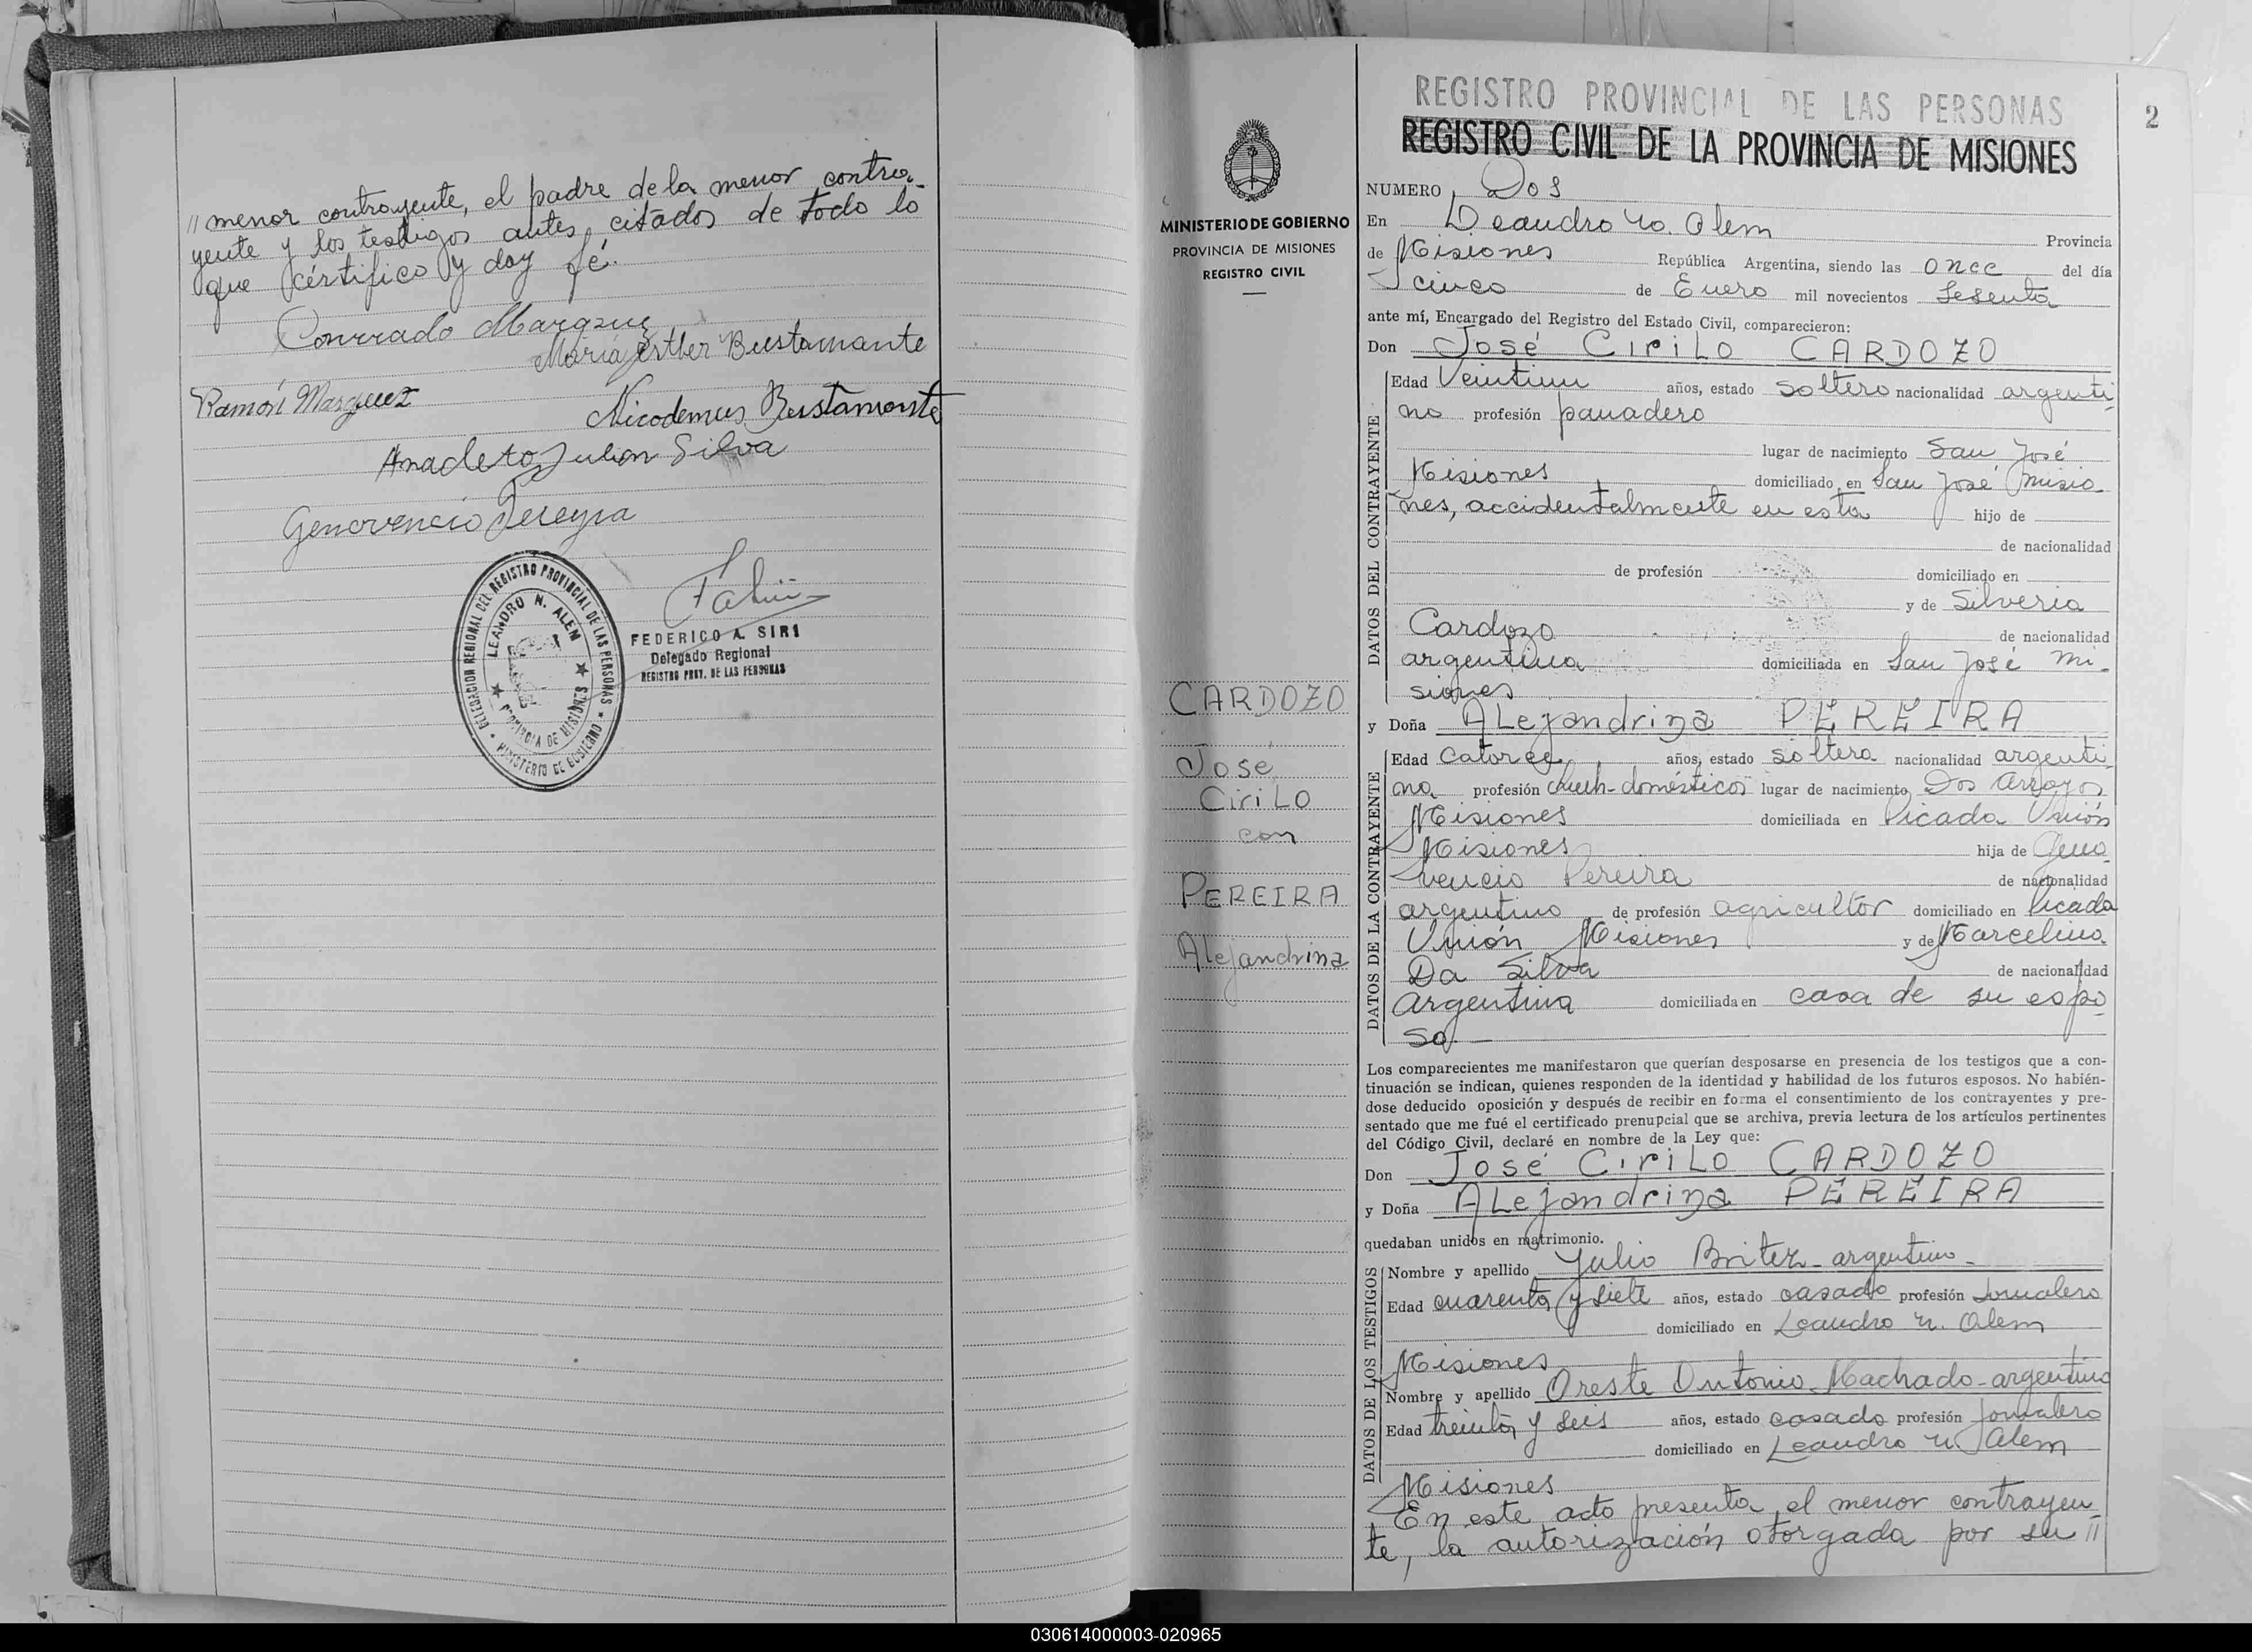 // menor contrayente, el padre de la menor contra-
yente y los testigos antes citados de todo lo
que cértifico y doy fé.
Conrrado Marquez
María Esther Bustamante
Ramón Marquez
Nicodemus Bustamante
Anacleto Julian Silva
Genervencio Pereyra
DELEGACION REGIONAL DEL REGISTRO PROVINCIAL DE LAS PERSONAS
MINISTERIO DE GOBIERNO
LEANDRO N. ALEM
PROVINCIA DE MISIONES
FEDERICO A. SIRI
Delegado Regional
REGISTRO PROV. DE LAS PERSONAS
MINISTERIO DE GOBIERNO
PROVINCIA DE MISIONES
REGISTRO CIVIL
CARDOZO
José
CiriLO
con
PEREIRA
Alejandrina
REGISTRO PROVINCIAL DE LAS PERSONAS
2
REGISTRO CIVIL DE LA PROVINCIA DE MISIONES
NUMERO Dos
En Leandro N. Alem Provincia
de Misiones República Argentina, siendo las once del día
cinco de Enero mil novecientos Sesenta
ante mí, Encargado del Registro del Estado Civil, comparecieron:
Don José CiriLO CARDOZO
DATOS DEL CONTRAYENTE
Edad Veintiun años, estado soltero nacionalidad argenti-
no profesión panadero
lugar de nacimiento San José
Misiones domiciliado en San José Misio-
nes, accidentalmente en esta hijo de
de nacionalidad
de profesión domiciliado en
y de Silveria
Cardozo de nacionalidad
argentina domiciliada en San José Mi-
siones
y Doña ALejandrina PEREIRA
DATOS DE LA CONTRAYENTE
Edad Catorce años, estado soltera nacionalidad argenti-
na profesión queh-domésticos lugar de nacimiento Dos Arroyos
Misiones domiciliada en Picada Unión
Misiones hija de Geno-
vencio Pereira de nacionalidad
argentino de profesión agricultor domiciliado en Picada
Unión Misiones y de Marcelina
Da Silva de nacionalidad
Argentina domiciliada en casa de su espo
so.
Los comparecientes me manifestaron que querían desposarse en presencia de los testigos que a con-
tinuación se indican, quienes responden de la identidad y habilidad de los futuros esposos. No habién-
dose deducido oposición y después de recibir en forma el consentimiento de los contrayentes y pre-
sentado que me fué el certificado prenupcial que se archiva, previa lectura de los artículos pertinentes
del Código Civil, declaré en nombre de la Ley que:
Don José CiriLO CARDOZO
y Doña ALejandrina PEREIRA
quedaban unidos en matrimonio.
DATOS DE LOS TESTIGOS
Nombre y apellido Julio Britez - argentino -
Edad cuarenta y siete años, estado casado profesión Jornalero
domiciliado en Leandro N. Alem
Misiones
Nombre y apellido Oreste Antonio Machado - argentino
Edad treinta y seis años, estado casado profesión Jornalero
domiciliado en Leandro N. Alem
Misiones
En este acto presenta el menor contrayen-
te, la autorización otorgada por su //
030614000003-020965